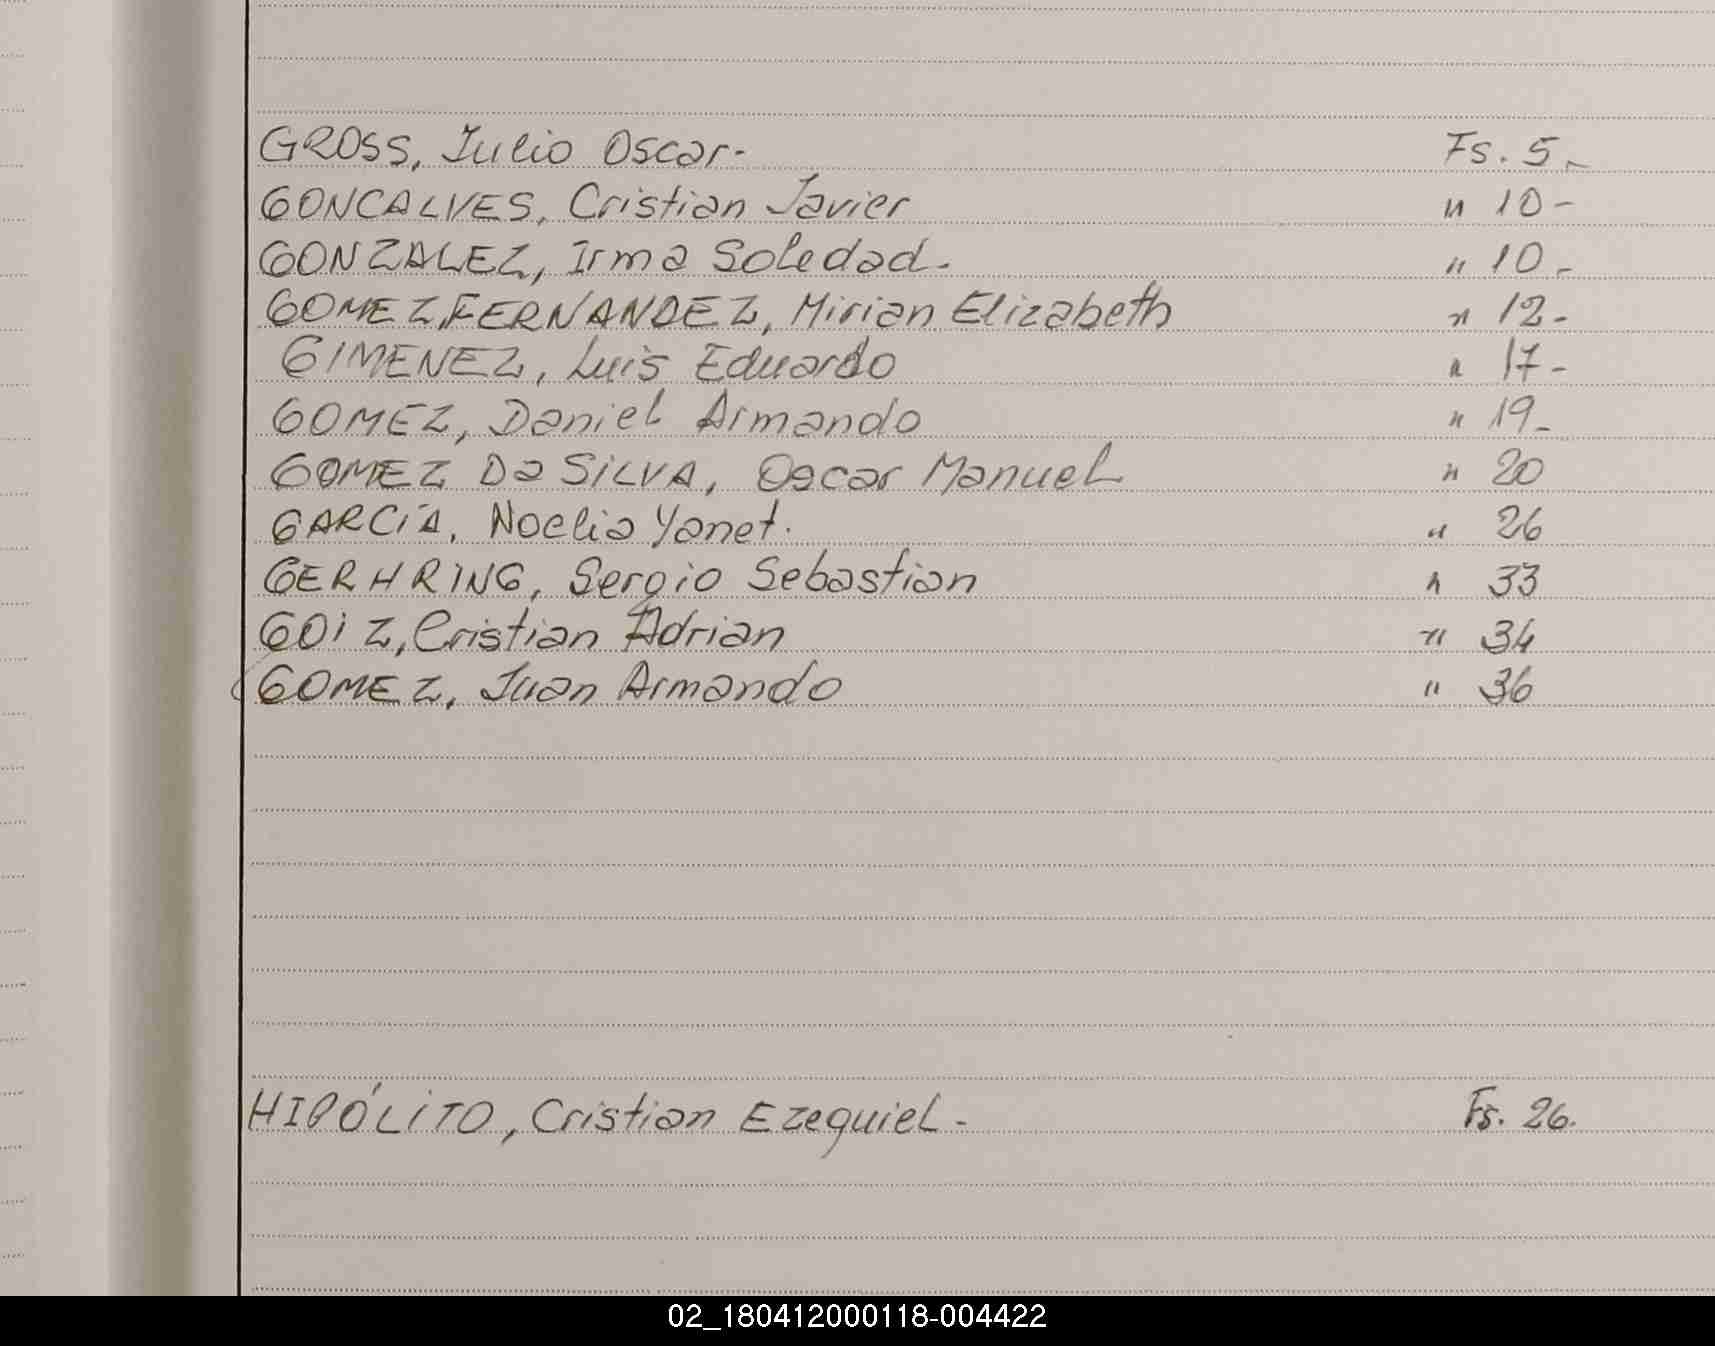 GROSS, Julio Oscar- Fs. 5.-
GONCALVES, Cristian Javier " 10-
GONZALEZ, Irma Soledad. " 10.-
GOMEZ,FERNANDEZ, Mirian Elizabeth " 12-
GIMENEZ, Luis Eduardo " 17-
GOMEZ, Daniel Armando " 19-
GOMEZ Da SiLVA, Oscar Manuel " 20
GARCíA, Noelia Yanet. " 26
GERHRING, Sergio Sebastian " 33
GOiZ, Cristian Adrian " 34
GOMEZ, Juan Armando " 36
HIPÓLiTO, Cristian Ezequiel- Fs. 26.
02_180412000118-004422